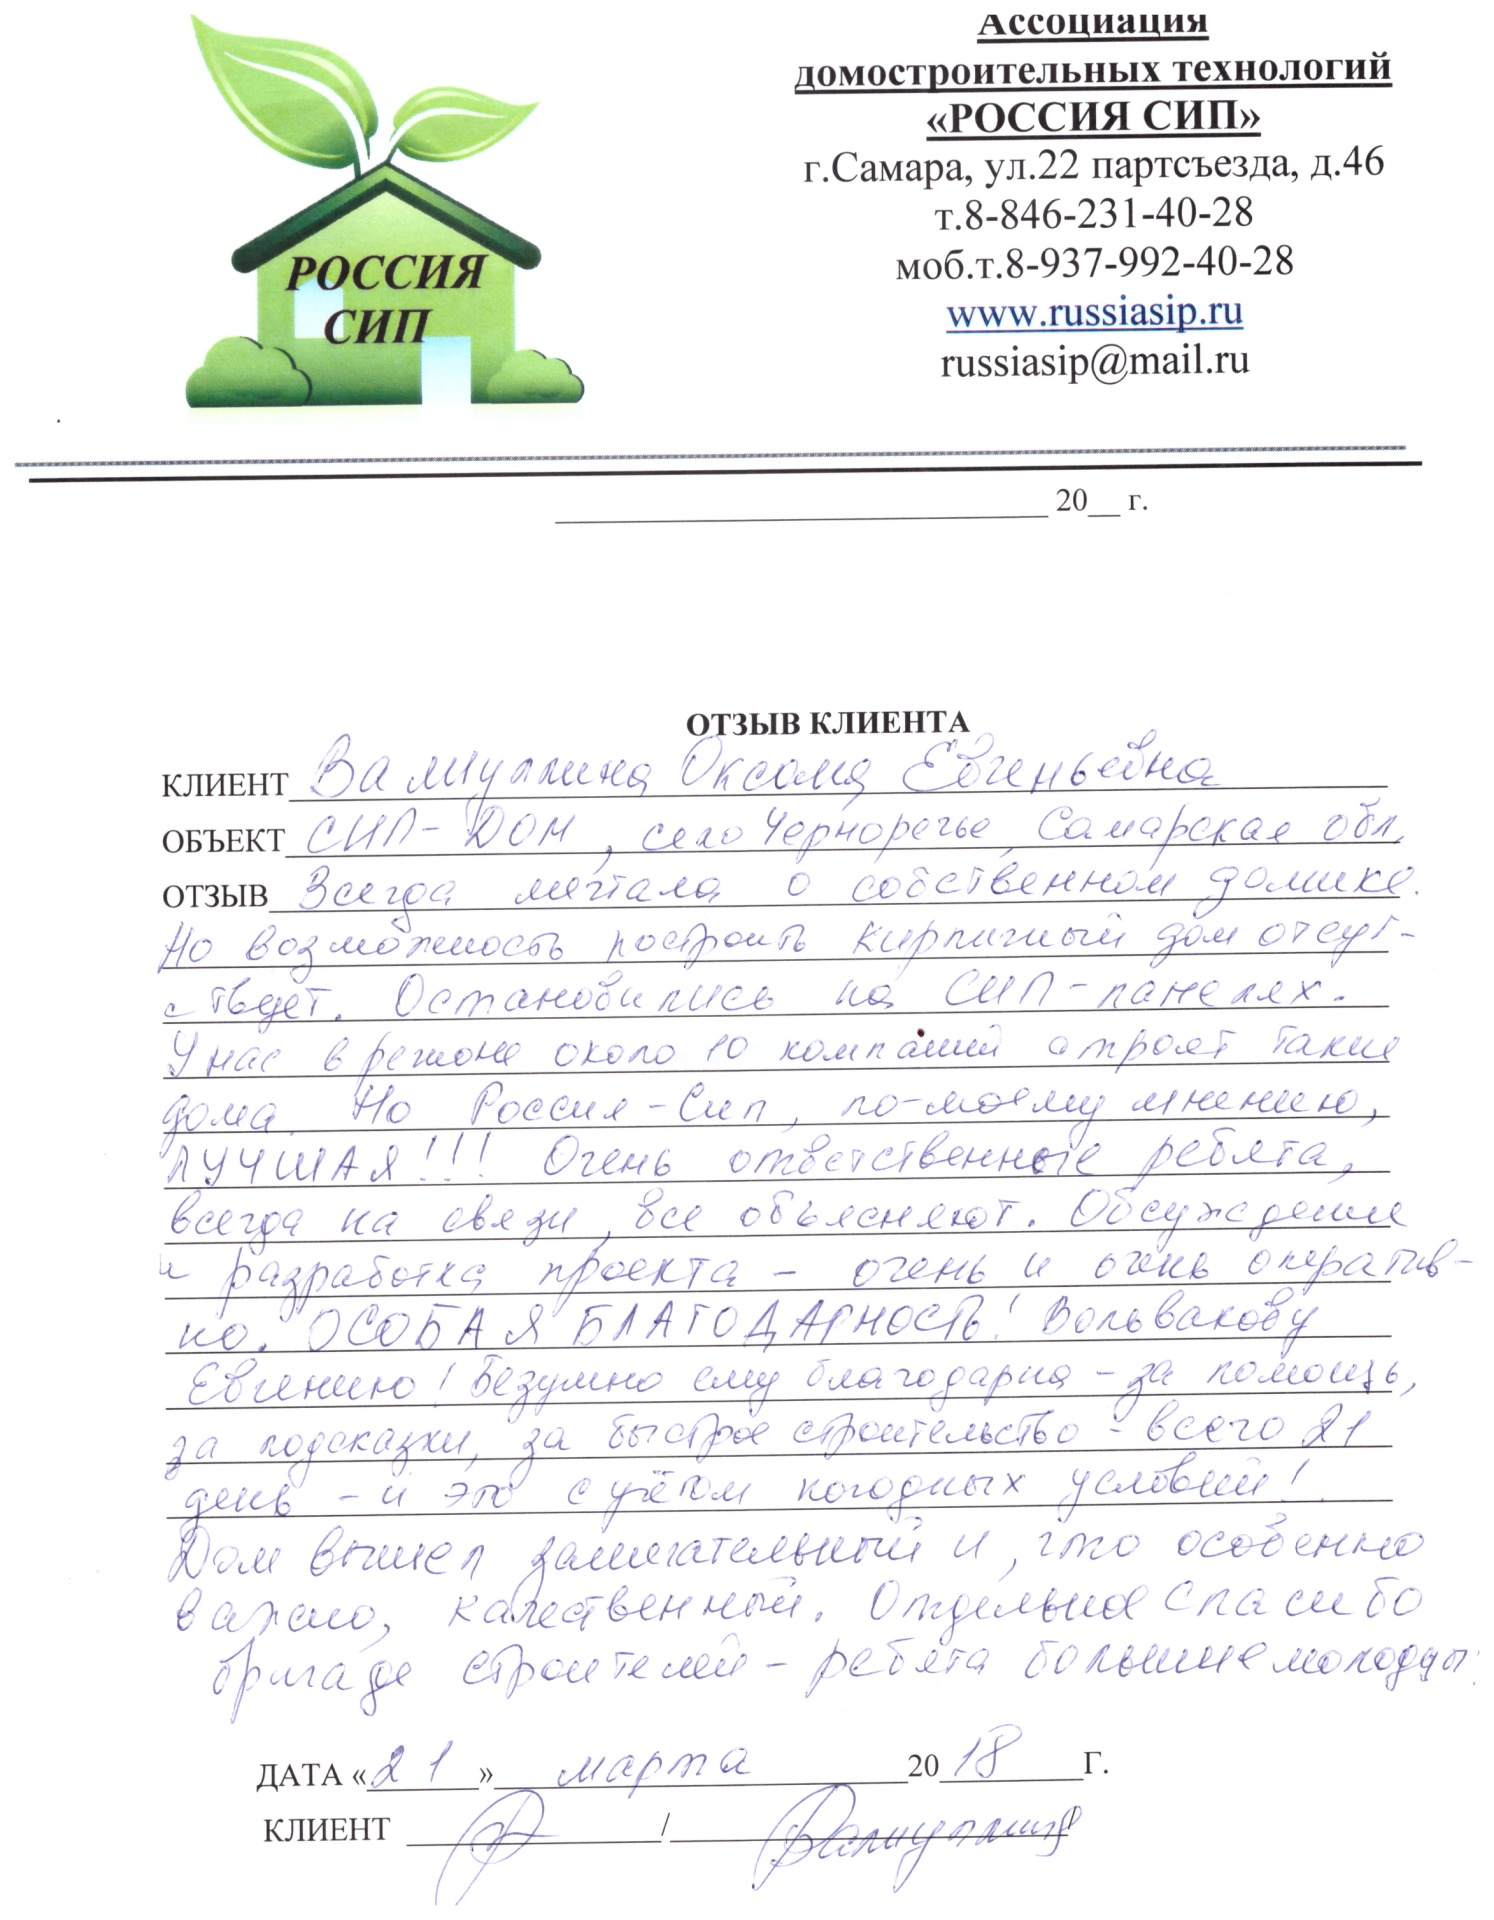 РОССИЯ
СИП
Ассоциация
домостроительных технологий
«РОССИЯ СИП»
г.Самара, ул.22 партсъезда, д.46
т.8-846-231-40-28
моб.т.8-937-992-40-28
www.russiasip.ru
russiasip@mail.ru
20__ г.
ОТЗЫВ КЛИЕНТА
КЛИЕНТ Валиуллина Оксана Евгеньевна
ОБЪЕКТ СИП-ДОМ, село Черноречье, Самарская обл.
ОТЗЫВ Всегда мечтала о собственном домике.
Но возможность построить кирпичный дом отсут-
ствует. Остановились на СИП-панелях.
У нас в регионе около 10 компаний строят такие
дома. Но Россия-Сип, по-моему мнению,
ЛУЧШАЯ!!! Очень ответственные ребята,
всегда на связи, все объясняют. Обсуждение
и разработка проекта - очень и очень оператив-
но. ОСОБАЯ БЛАГОДАРНОСТЬ! Вольвакову
Евгению! Безумно ему благодарна - за помощь,
за подсказки, за быстрое строительство - всего 21
день - и это с учётом погодных условий!
Дом вышел замечательный и, что особенно
важно, качественный. Отдельное спасибо
бригаде строителей - ребята большие молодцы!
ДАТА «21» марта 2018 Г.
КЛИЕНТ / Валиуллина/